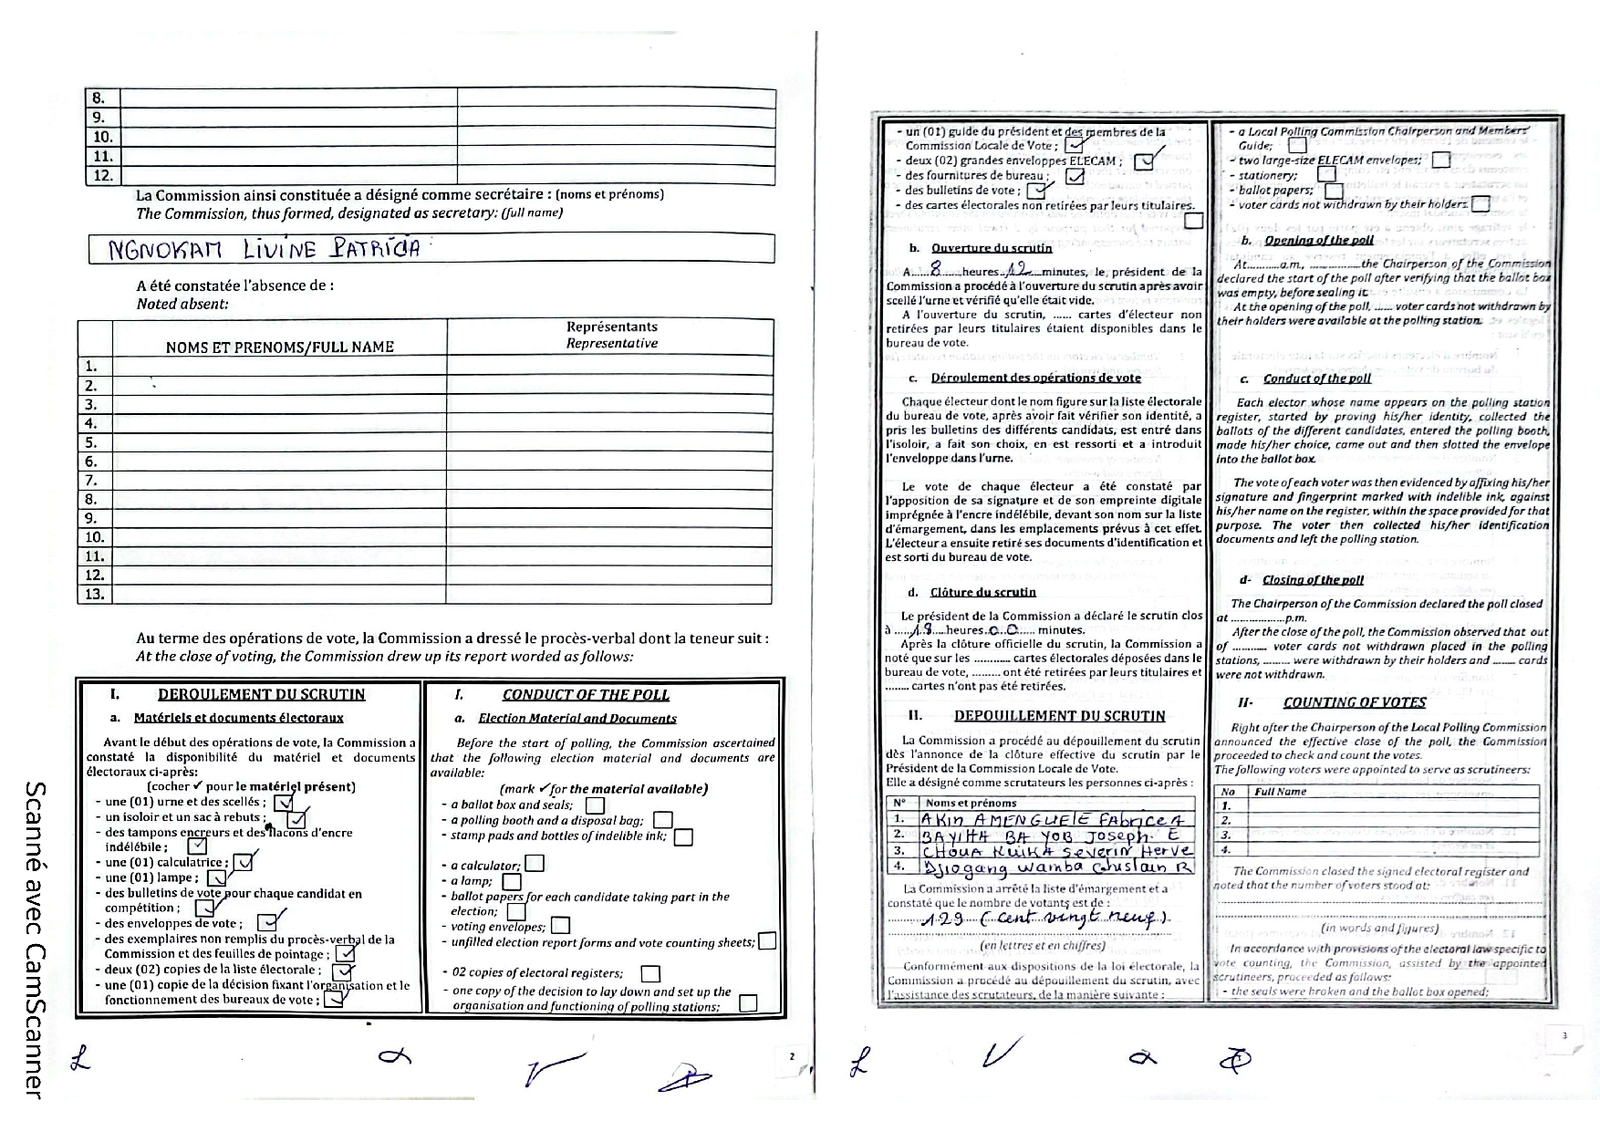 8.
9.
10.
11.
12.
La Commission ainsi constituée a désigné comme secrétaire : (noms et prénoms)
The Commission, thus formed, designated as secretary: (full name)
NGNOKAM LIVINE PATRICIA
A été constatée l'absence de :
Noted absent:
NOMS ET PRENOMS/FULL NAME
Représentants
Representative
1.
2.
3.
4.
5.
6.
7.
8.
9.
10.
11.
12.
13.
Au terme des opérations de vote, la Commission a dressé le procès-verbal dont la teneur suit :
At the close of voting, the Commission drew up its report worded as follows:
I. DEROULEMENT DU SCRUTIN
a. Matériels et documents électoraux
Avant le début des opérations de vote, la Commission a
constaté la disponibilité du matériel et documents
électoraux ci-après:
(cocher ✓ pour le matériel présent)
- une (01) urne et des scellés ;
- un isoloir et un sac à rebuts ;
- des tampons encreurs et des flacons d'encre
indélébile ;
- une (01) calculatrice ;
- une (01) lampe ;
- des bulletins de vote pour chaque candidat en
compétition ;
- des enveloppes de vote ;
- des exemplaires non remplis du procès-verbal de la
Commission et des feuilles de pointage ;
- deux (02) copies de la liste électorale ;
- une (01) copie de la décision fixant l'organisation et le
fonctionnement des bureaux de vote ;
I. CONDUCT OF THE POLL
a. Election Material and Documents
Before the start of polling, the Commission ascertained
that the following election material and documents are
available:
(mark ✓ for the material available)
- a ballot box and seals;
- a polling booth and a disposal bag;
- stamp pads and bottles of indelible ink;
- a calculator;
- a lamp;
- ballot papers for each candidate taking part in the
election;
- voting envelopes;
- unfilled election report forms and vote counting sheets;
- 02 copies of electoral registers;
- one copy of the decision to lay down and set up the
organisation and functioning of polling stations;
2
Scanné avec CamScanner
- un (01) guide du président et des membres de la
Commission Locale de Vote ;
- deux (02) grandes enveloppes ELECAM ;
- des fournitures de bureau ;
- des bulletins de vote ;
- des cartes électorales non retirées par leurs titulaires.
b. Ouverture du scrutin
A....8.....heures..12...minutes, le président de la
Commission a procédé à l'ouverture du scrutin après avoir
scellé l'urne et vérifié qu'elle était vide.
A l'ouverture du scrutin, ...... cartes d'électeur non
retirées par leurs titulaires étaient disponibles dans le
bureau de vote.
c. Déroulement des opérations de vote
Chaque électeur dont le nom figure sur la liste électorale
du bureau de vote, après avoir fait vérifier son identité, a
pris les bulletins des différents candidats, est entré dans
l'isoloir, a fait son choix, en est ressorti et a introduit
l'enveloppe dans l'urne.
Le vote de chaque électeur a été constaté par
l'apposition de sa signature et de son empreinte digitale
imprégnée à l'encre indélébile, devant son nom sur la liste
d'émargement, dans les emplacements prévus à cet effet.
L'électeur a ensuite retiré ses documents d'identification et
est sorti du bureau de vote.
d. Clôture du scrutin
Le président de la Commission a déclaré le scrutin clos
à .....18....heures..00..... minutes.
Après la clôture officielle du scrutin, la Commission a
noté que sur les ........... cartes électorales déposées dans le
bureau de vote, ......... ont été retirées par leurs titulaires et
........ cartes n'ont pas été retirées.
II. DEPOUILLEMENT DU SCRUTIN
La Commission a procédé au dépouillement du scrutin
dès l'annonce de la clôture effective du scrutin par le
Président de la Commission Locale de Vote.
Elle a désigné comme scrutateurs les personnes ci-après :
N° Noms et prénoms
1. AKIN AMENGUELE Fabrice A
2. BAYIHA BA YOB Joseph. E
3. CHOUA KUIKA Severin Herve
4. Djiogang Wamba Ghislain R
La Commission a arrêté la liste d'émargement et a
constaté que le nombre de votants est de :
129 (cent vingt neuf)
(en lettres et en chiffres)
Conformément aux dispositions de la loi électorale, la
Commission a procédé au dépouillement du scrutin, avec
l'assistance des scrutateurs, de la manière suivante :
- a Local Polling Commission Chairperson and Members'
Guide;
- two large-size ELECAM envelopes;
- stationery;
- ballot papers;
- voter cards not withdrawn by their holders.
b. Opening of the poll
At...........a.m., ..................the Chairperson of the Commission
declared the start of the poll after verifying that the ballot box
was empty, before sealing it.
At the opening of the poll, ...... voter cards not withdrawn by
their holders were available at the polling station.
c. Conduct of the poll
Each elector whose name appears on the polling station
register, started by proving his/her identity, collected the
ballots of the different candidates, entered the polling booth,
made his/her choice, came out and then slotted the envelope
into the ballot box.
The vote of each voter was then evidenced by affixing his/her
signature and fingerprint marked with indelible ink, against
his/her name on the register, within the space provided for that
purpose. The voter then collected his/her identification
documents and left the polling station.
d- Closing of the poll
The Chairperson of the Commission declared the poll closed
at ..................p.m.
After the close of the poll, the Commission observed that out
of ........... voter cards not withdrawn placed in the polling
stations, ......... were withdrawn by their holders and ........ cards
were not withdrawn.
II- COUNTING OF VOTES
Right after the Chairperson of the Local Polling Commission
announced the effective close of the poll, the Commission
proceeded to check and count the votes.
The following voters were appointed to serve as scrutineers:
No Full Name
1.
2.
3.
4.
The Commission closed the signed electoral register and
noted that the number of voters stood at:
(in words and figures)
In accordance with provisions of the electoral law specific to
vote counting, the Commission, assisted by the appointed
scrutineers, proceeded as follows:
- the seals were broken and the ballot box opened;
3